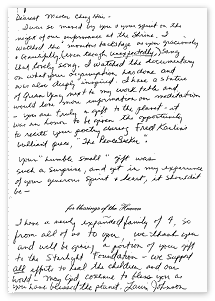 Dearest Master Ching Hai -
I was so moved by you & your spirit on the
night of our experience at the Shrine. I
watched the monitor backstage as you graciously
& beautifully (even though unexpectedly) sang
that lovely song. I watched the documentary
on what your organization has done and
was also deeply inspired. I have a statue
of Quan Yin next to my work table and
would love more information on meditation
- you are truly a gift to the planet - it
was an honor to be given the opportunity
to recite your poetry during Fred Karlin's
brilliant piece, The PeaceSeeker.
Your "humble small" gift was
such a surprise, and yet in my experience
of your generous Spirit & heart, it shouldn't
be -
for blessings of the Heaven
I have a newly expanded family of 9. So
from all of us to you, we thank you
and will be giving a portion of your gift
to the Starlight Foundation - we support
all efforts to heal the children and our
world - May God continue to bless you as
you have blessed the planet. Laura Johnson